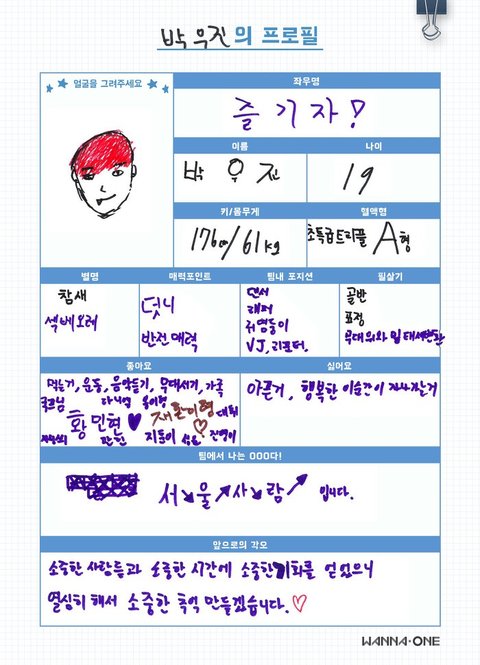 박우진의 프로필
얼굴을 그려주세요
좌우명
즐기자!
이름
나이
박우진
19
키/몸무게
혈액형
176cm/61kg
초특급트리플 A형
별명
매력포인트
팀내 포지션
필살기
참새
섹베오레
덧니
반전매력
댄서
래퍼
귀염둥이
VJ, 리포터.
골반
표정
무대 위와 밑 태세변환
좋아요
싫어요
먹는거, 운동, 음악듣기, 무대서기, 가족
황민현
재환이형 대휘
지훈이
아픈거, 행복한 이순간이 지나가는거
팀에서 나는 OOO다!
서울사람 입니다.
앞으로의 각오
소중한 사람들과 소중한 시간에 소중한 기회를 얻었으니
열심히 해서 소중한 추억 만들겠습니다.
WANNA·ONE